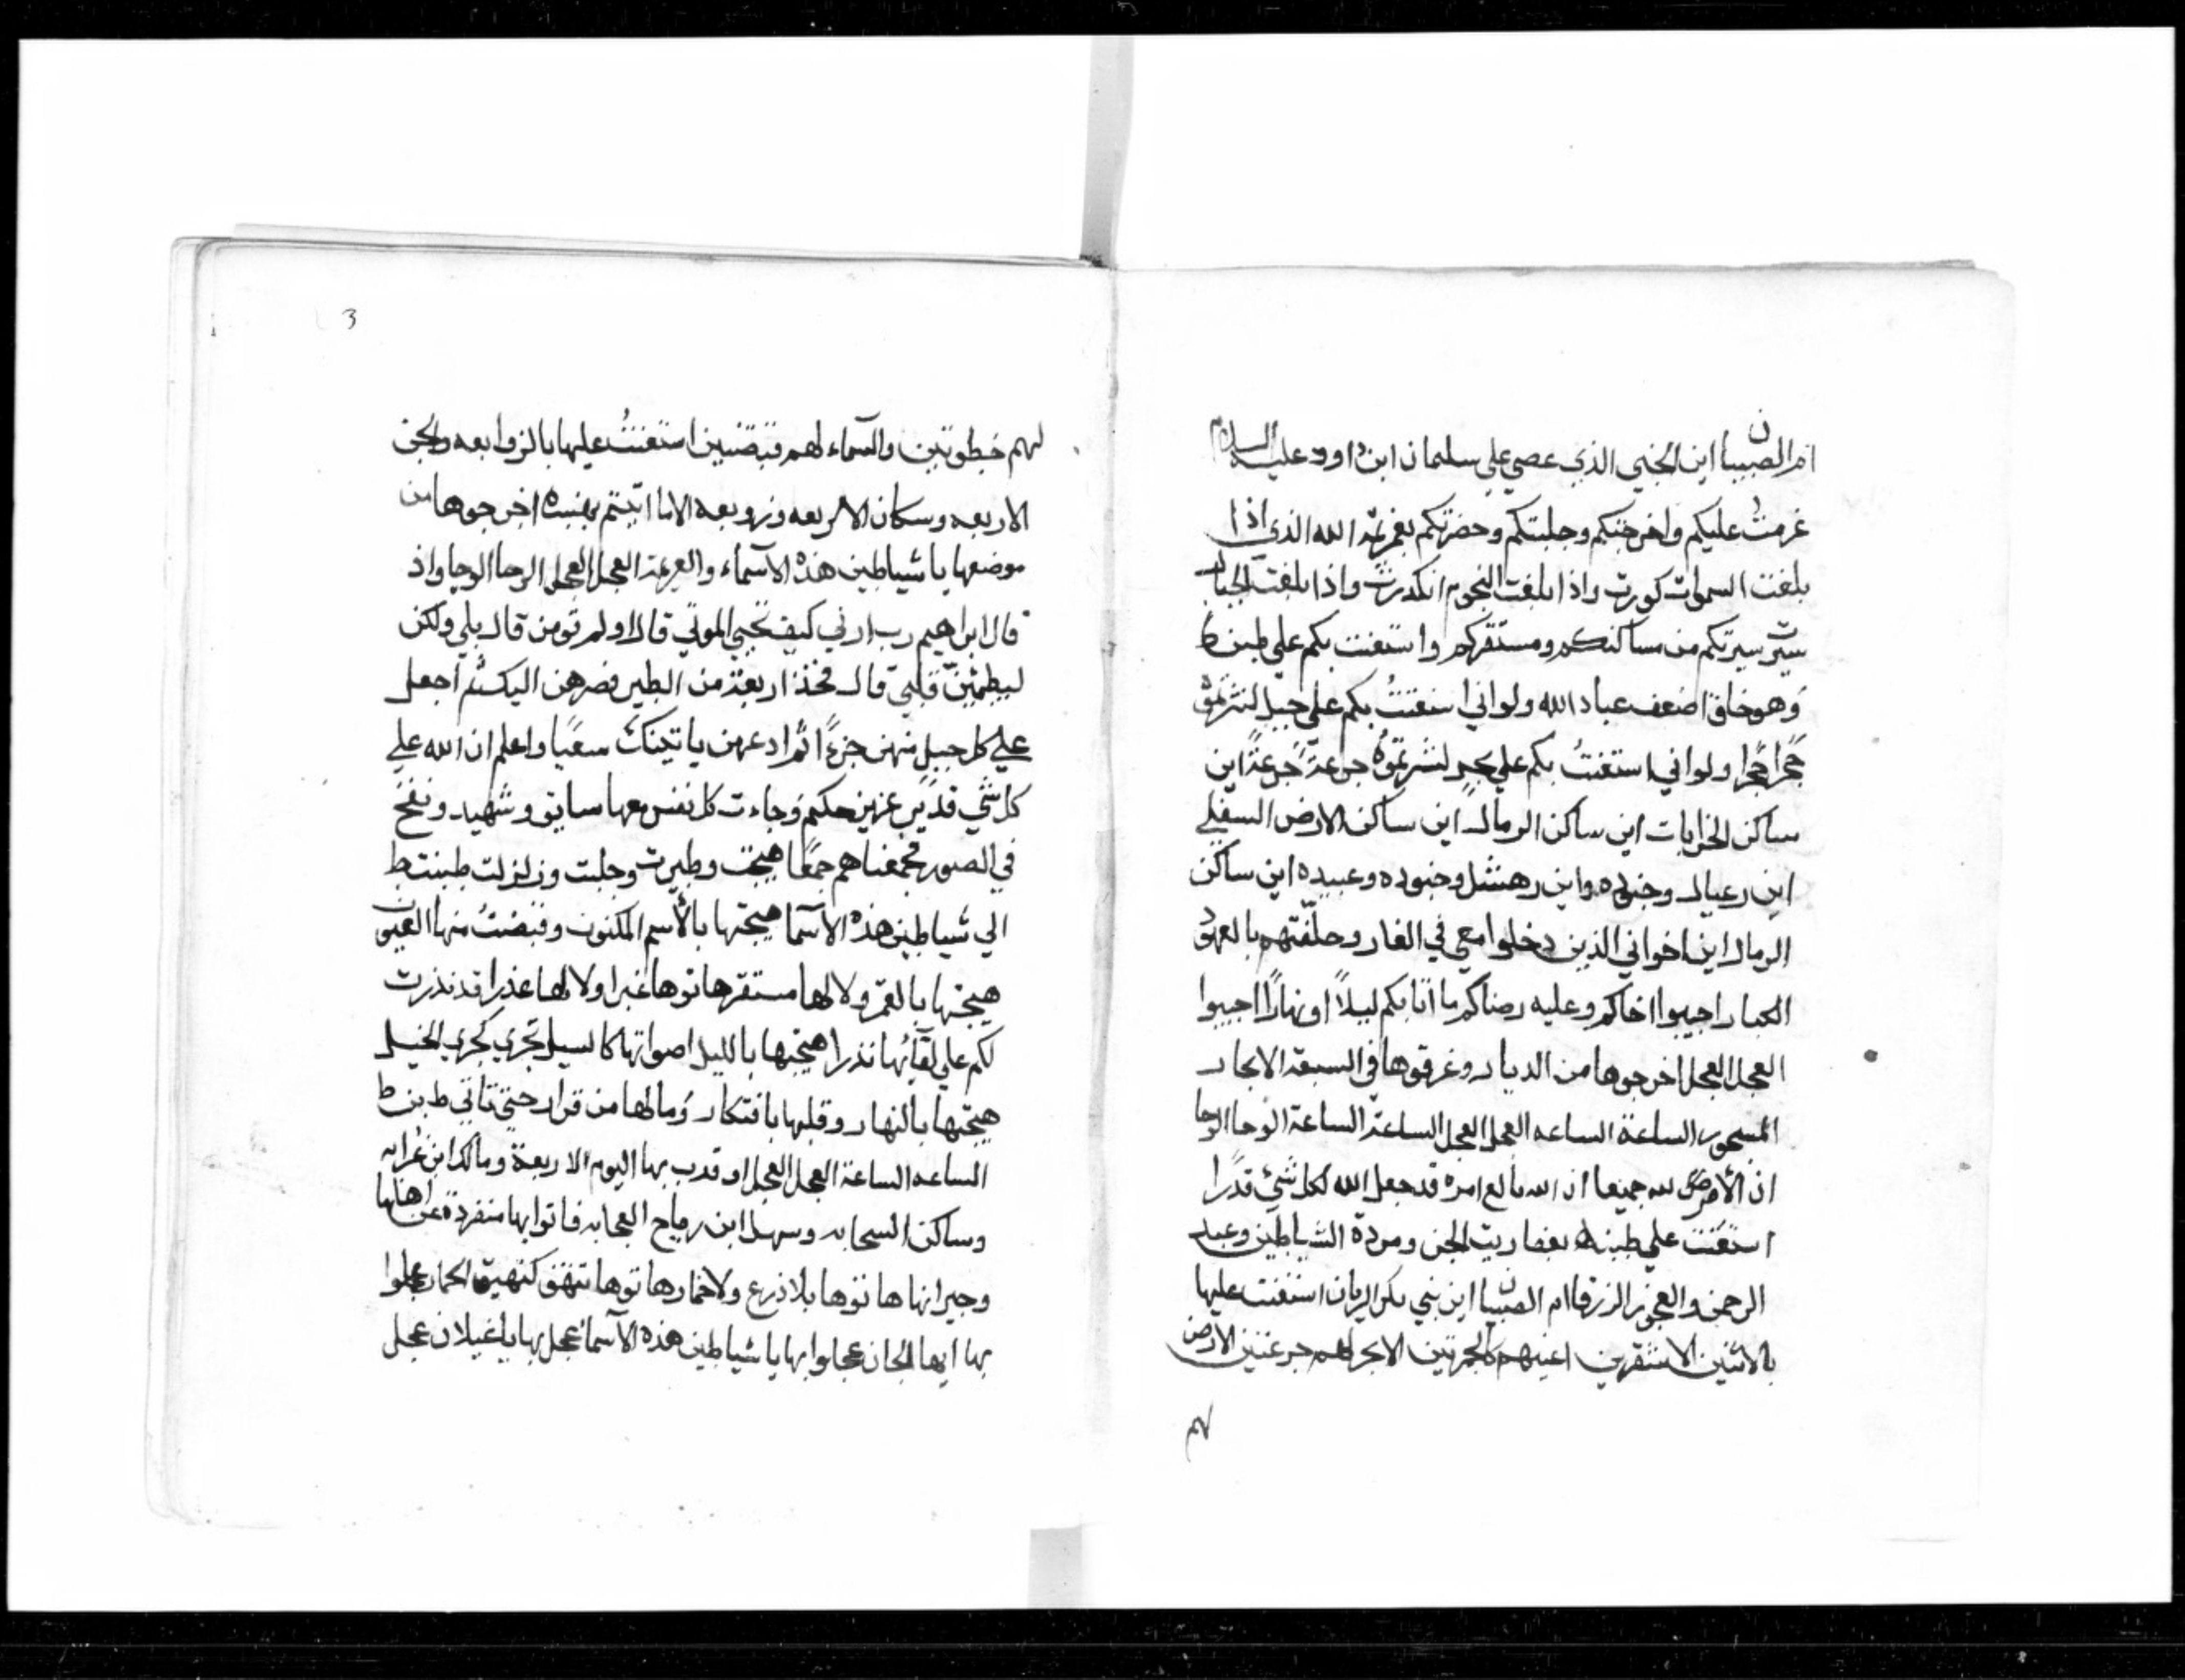 ام الصبيان اين الجني الذي عصي علي سليمان ابن داود عليه السلام
عزمت عليكم واخرجتكم وجلبتكم وحضرتكم بعزيمة الله الذي اذا
بلغت السموات كورت واذا بلغت النجوم انكدرت واذا بلغت الجبال
سيرت سيرتكم من مساكنكم ومستقركم واستعنت بكم علي طبنه ط
وهو خلق اضعف عباد الله ولو اني استعنتُ بكم علي جبل لنثرتموه
حجرًا حجرًا ولو اني استعنتُ بكم علي بحر لشربتموُه جرعةً جرعةً اين
ساكن الخرابات اين ساكن الرمال اين ساكن الارض السفلي
اين رعيال وجنوده واين رهشل وجنوده وعبيده اين ساكن
الرمال اين اخواني الذين دخلوا معي في الغار وحلّفتهم بالعهود
الكبار اجيبوا اخاكم وعليه رضاكم ما اتابكم ليلاً او نهارًا اجيبوا
العجل العجل اخرجوها من الديار وغرقوها في السبعة الابحار
المسجور الساعة الساعه العجل العجل الساعة الساعة الوحا الوحا
ان الأمر كل لله جميعا ان الله بالغ امره قد جعل الله لكل شئ قدرا
استعنت علي طبنه بعفاريت الجن ومردة الشياطين وعبد
الرحمن والعجوز الزرقا ام الصبيان اين بني بكر الريان استعنت عليها
بالاثنين الاشقرين اعينهم كالجمرتين الابحر لهم جرعتين الارض
لهم
3
لهم خطوتين والسماء لهم قبضتين استعنتُ عليها بالزوابعه والجن
الاربعه وسكان الاربعه وزوبعه الاما اتيتم بهنسبه اخرجوها من
موضعها يا شياطين هذه الآسماء والعزيمة العجل العجل الوحا الوحا واذ
قال ابراهيم رب ارني كيف تحيي الموتي قال اولم تومن قال بلي ولكن
ليطمئنّ قلبي قال فخذ اربعة من الطير فصرهن اليك ثم اجعل
علي كل جبل منهن جزءًا ثم ادعهن ياتينك سعيًا واعلم ان الله علي
كل شي قدير عزيز حكيم وجاءت كل نفس معها سايق وشهيد ونفخ
في الصور فجمعناهم جمعًا هيجت وطيرت وجلبت وزلزلت طبنت ط
الي شياطين هذه الآسما هيجتها بالأسم المكنون وقبضتُ منها العيون
هيجتها بالقمر ولا لها مستقر هاتوها غبرا ولا لها عذرا قد نذرت
لكم علي لقآئها نذرا هيجتها بالليل اصواتها كالسيل تجري كجري الخيل
هيجتها بالنهار وقلبها بافتكار وما لها من قرار حتي تاتي ط بنت ط
الساعه الساعة العجل العجل او قدب بها اليوم الاربعة ومالك ابن غرابه
وساكن السحابه وسهل ابن رماح العجابه فاتوا بها منفردة عن اهلها
وجيرانها هاتوها بلا ذرع ولا خمار هاتوها تنهق كنهيق الحمار عجلوا
بها ايها الجان عجلوا بها يا شياطين هذه الآسما عجل بها يا غيلان عجل